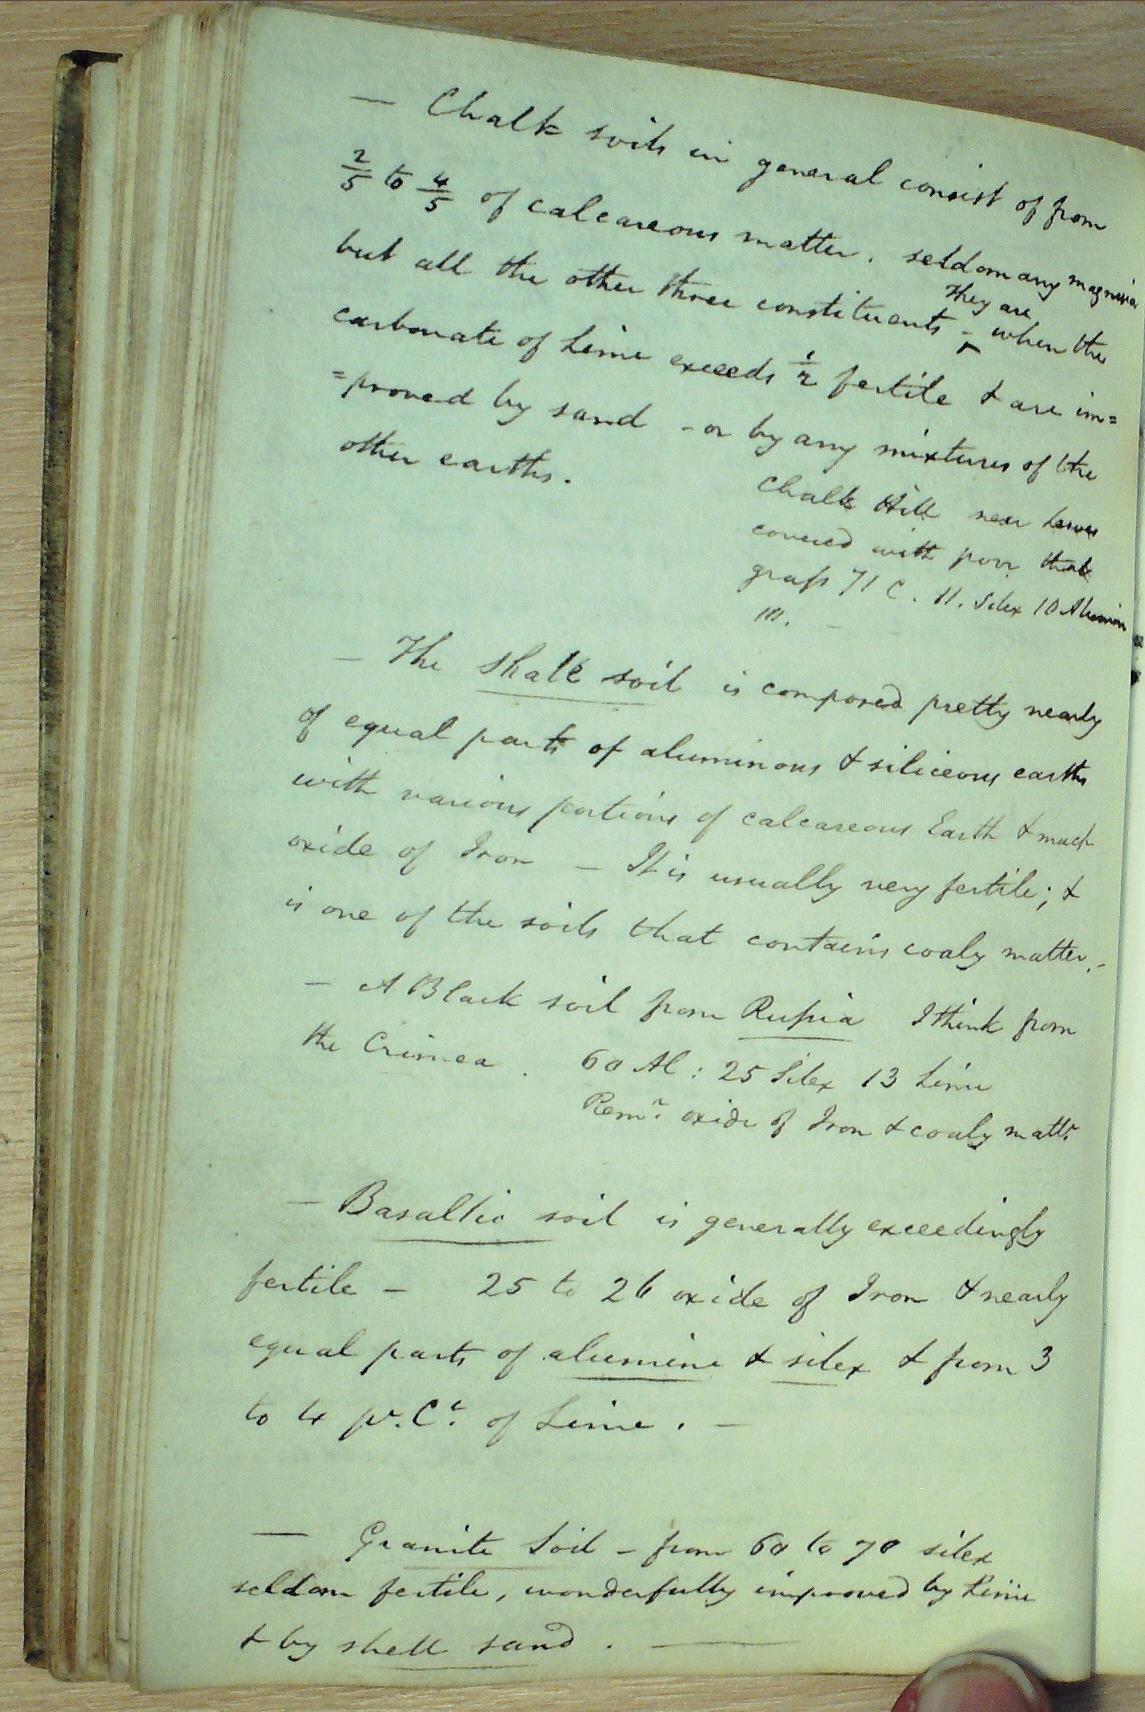 — Chalk soils in general consist of from
2/5 to 4/5 of calcareous matter. seldom any magnesia
but all the other three constituents - They are when the
carbonate of Lime exceeds 1/2 fertile & are im=
=proved by sand - or by any mixtures of the
other earths.
Chalk Hill near Lewes
covered with poor
grass 71 C. 11. Silex 10 Alumin
111. —
— The Shale soil is composed pretty nearly
of equal parts of aluminous & siliceous earths
with various portions of calcareous Earth & much
oxide of Iron — It is usually very fertile; &
is one of the soils that contains coaly matter. -
— A Black soil from Russia I think from
the Crimea. 60 Al: 25 Silex 13 Lime
Remr. oxide of Iron & coaly mattr.
— Basaltic soil is generally exceedingly
fertile — 25 to 26 oxide of Iron & nearly
equal parts of alumine & silex & from 3
to 4 pr. Ct. of Lime. —
— Granite Soil - from 60 to 70 silex
seldom fertile, wonderfully improved by Lime
& by shell sand. —